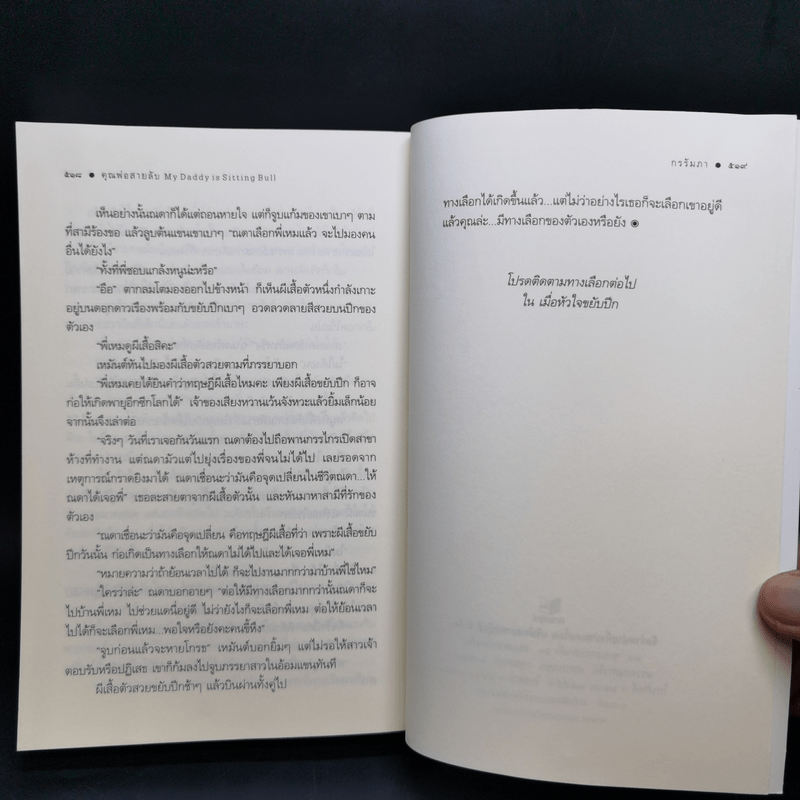 ๕๑๘ ● คุณพ่อสายลับ My Daddy is Sitting Bull
เห็นอย่างนั้นณดาก็ได้แต่ถอนหายใจ แต่ก็จูบแก้มของเขาเบาๆ ตาม
ที่สามีร้องขอ แล้วลูบต้นแขนเขาเบาๆ "ณดาเลือกพี่เหมแล้ว จะไปมองคน
อื่นได้ยังไง"
"ทั้งที่พี่ชอบแกล้งหนูน่ะหรือ"
"อือ" ตากลมโตมองออกไปข้างหน้า ก็เห็นผีเสื้อตัวหนึ่งกำลังเกาะ
อยู่บนดอกดาวเรืองพร้อมกับขยับปีกเบาๆ อวดลวดลายสีสวยบนปีกของ
ตัวเอง
"พี่เหมดูผีเสื้อสิคะ"
เหมันต์หันไปมองผีเสื้อตัวสวยตามที่ภรรยาบอก
"พี่เหมเคยได้ยินคำว่าทฤษฎีผีเสื้อไหมคะ เพียงผีเสื้อขยับปีก ก็อาจ
ก่อให้เกิดพายุอีกซีกโลกได้" เจ้าของเสียงหวานเว้นจังหวะแล้วยิ้มเล็กน้อย
จากนั้นจึงเล่าต่อ
"จริงๆ วันที่เราเจอกันวันแรก ณดาต้องไปถือพานกรรไกรเปิดสาขา
ห้างที่ทำงาน แต่ณดามัวแต่ไปยุ่งเรื่องของพี่จนไม่ได้ไป เลยรอดจาก
เหตุการณ์กราดยิงมาได้ ณดาเชื่อนะว่ามันคือจุดเปลี่ยนในชีวิตณดา...ให้
ณดาได้เจอพี่" เธอละสายตาจากผีเสื้อตัวนั้น และหันมาหาสามีที่รักของ
ตัวเอง
"ณดาเชื่อนะว่ามันคือจุดเปลี่ยน คือทฤษฎีผีเสื้อที่ว่า เพราะผีเสื้อขยับ
ปีกวันนั้น ก่อเกิดเป็นทางเลือกให้ณดาไม่ได้ไปและได้เจอพี่เหม"
"หมายความว่าถ้าย้อนเวลาไปได้ ก็จะไปงานมากกว่ามาบ้านพี่ใช่ไหม"
"ใครว่าล่ะ" ณดาบอกอายๆ "ต่อให้มีทางเลือกมากกว่านั้นณดาก็จะ
ไปบ้านพี่เหม ไปช่วยแดนี่อยู่ดี ไม่ว่ายังไงก็จะเลือกพี่เหม ต่อให้ย้อนเวลา
ไปได้ก็จะเลือกพี่เหม...พอใจหรือยังคะคนขี้หึง"
"จูบก่อนแล้วจะหายโกรธ" เหมันต์บอกยิ้มๆ แต่ไม่รอให้สาวเจ้า
ตอบรับหรือปฏิเสธ เขาก็ก้มลงไปจูบภรรยาสาวในอ้อมแขนทันที
ผีเสื้อตัวสวยขยับปีกช้าๆ แล้วบินผ่านทั้งคู่ไป
กรรัมภา ● ๕๑๙
ทางเลือกได้เกิดขึ้นแล้ว...แต่ไม่ว่าอย่างไรเธอก็จะเลือกเขาอยู่ดี
แล้วคุณล่ะ...มีทางเลือกของตัวเองหรือยัง ◉
โปรดติดตามทางเลือกต่อไป
ใน เมื่อหัวใจขยับปีก